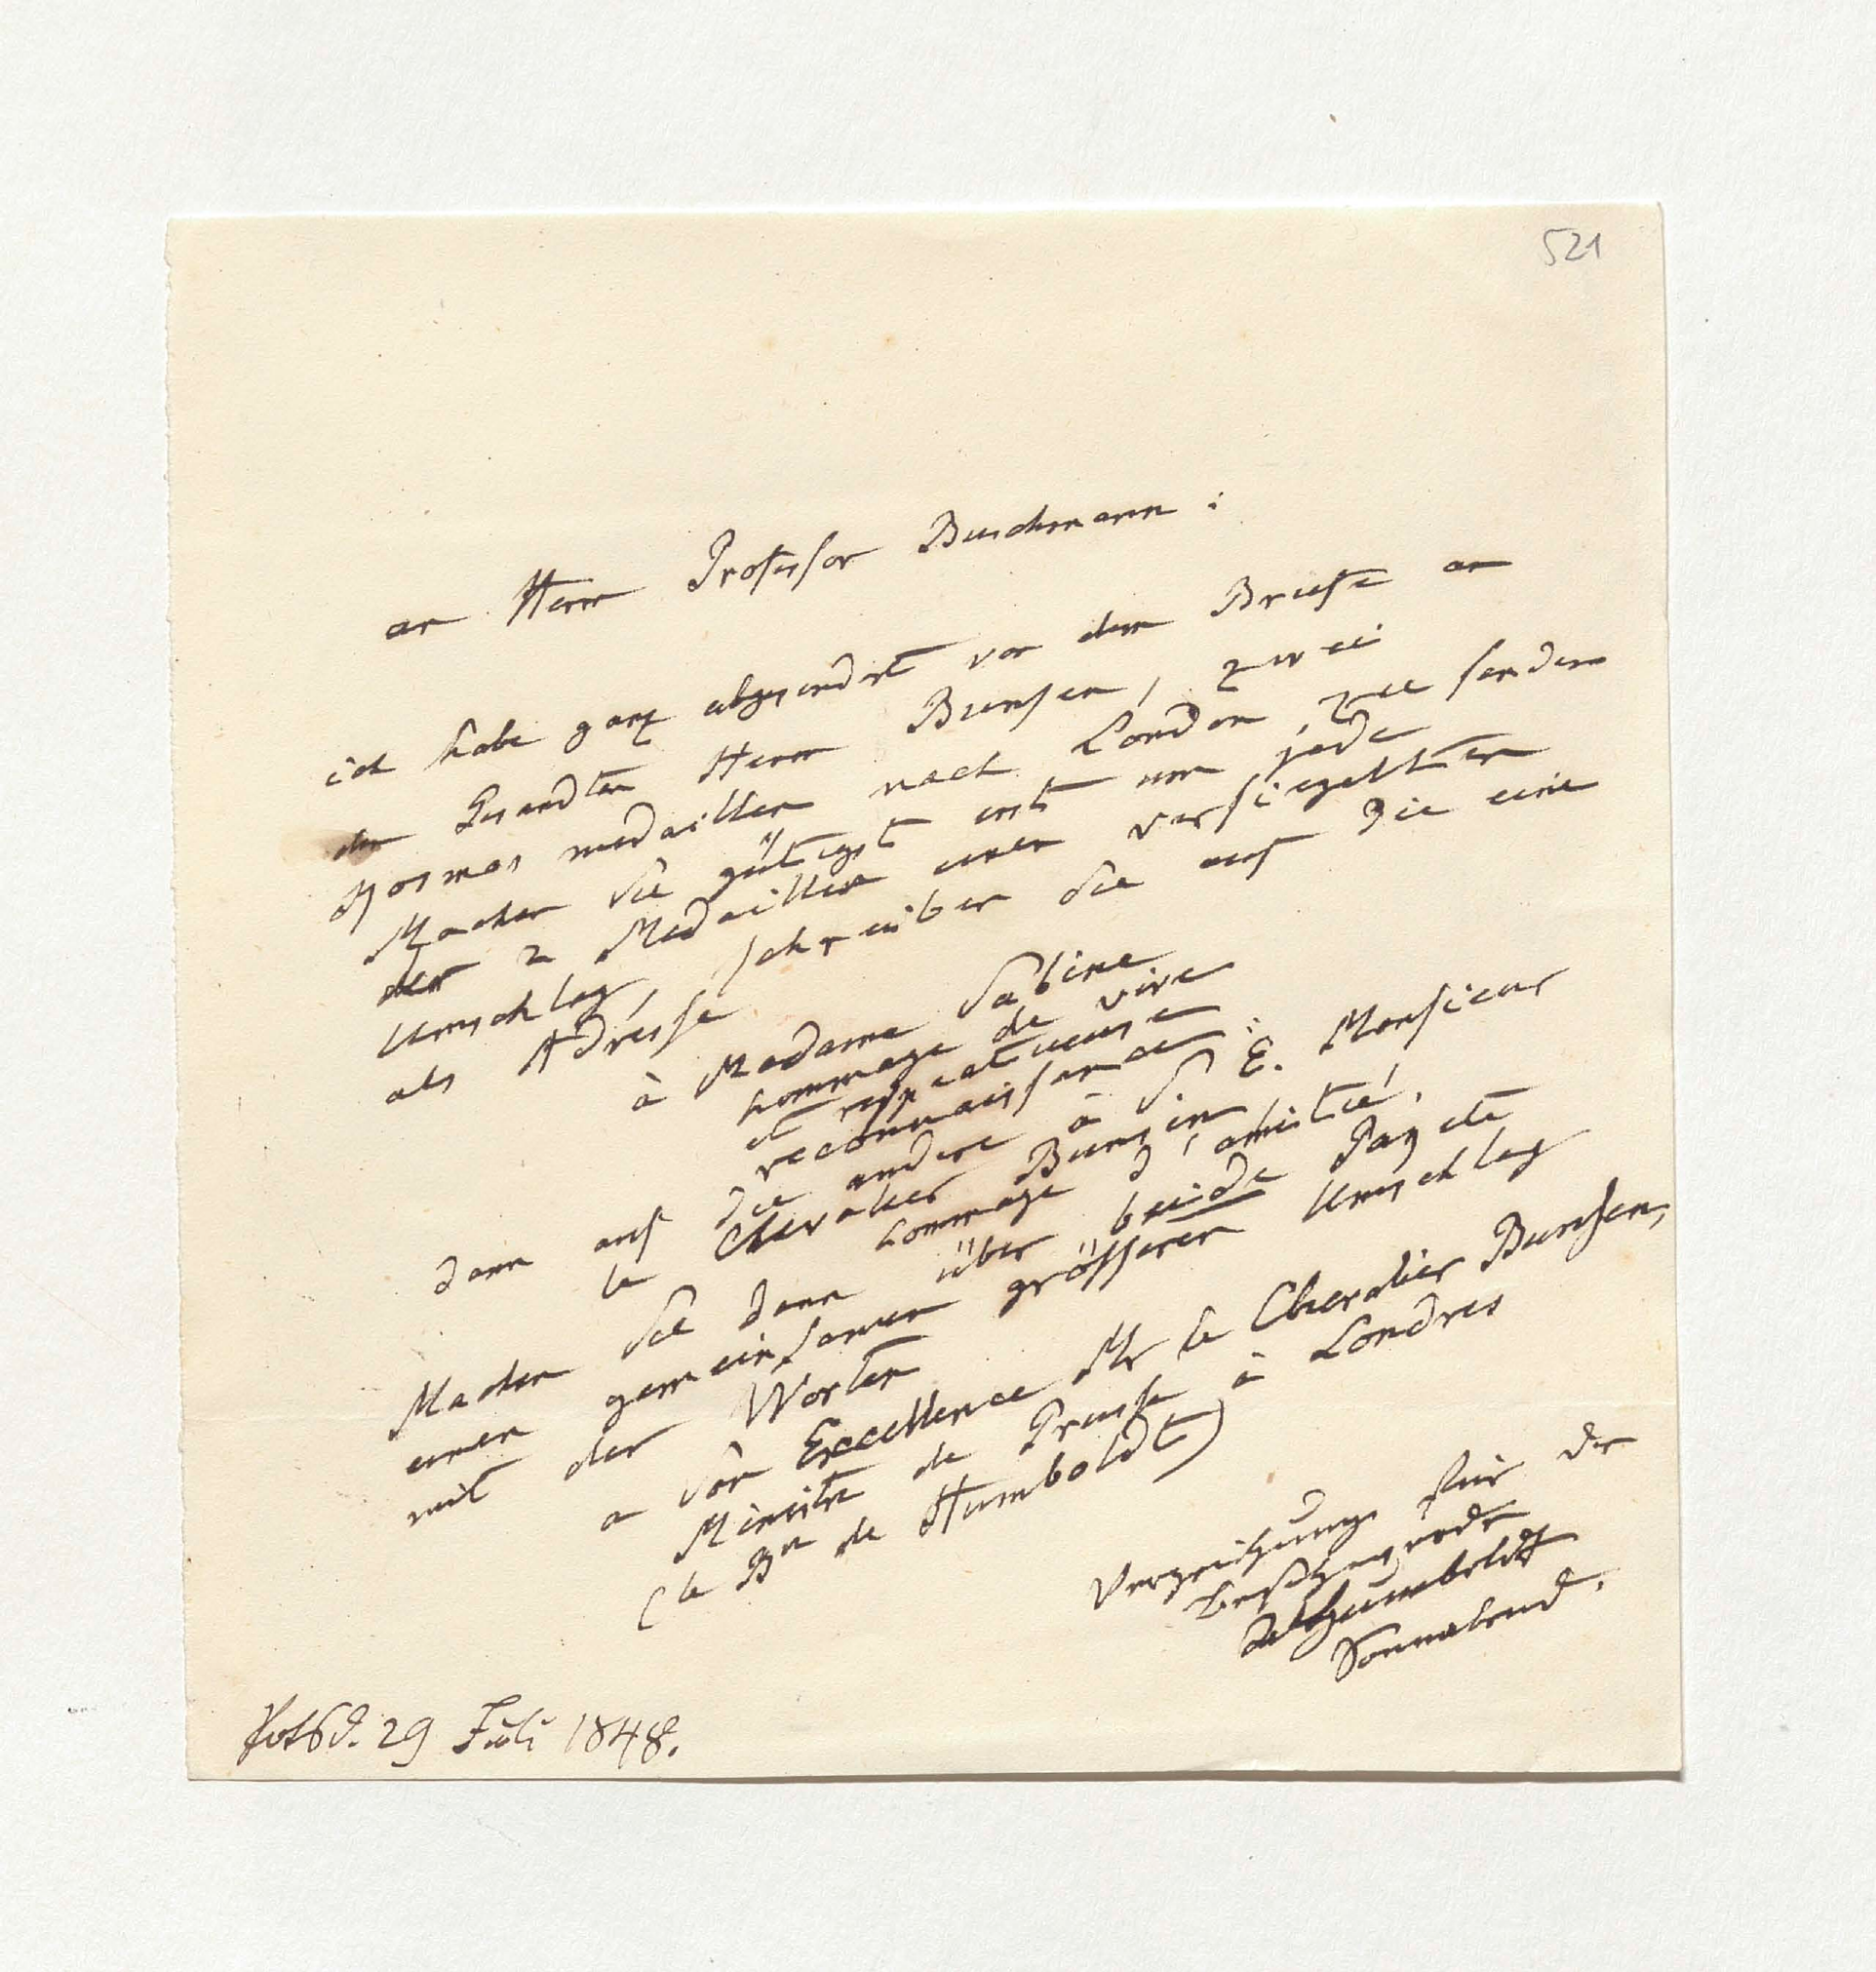 521
an Herrn Professor Buschmann :
ich habe ganz abgesondert von dem Briefe an
den Gesandten Herrn Bunsen, zwei
Kosmos medaillen nach London zu senden
Machen Sie gütigst erst um jede
der 2 Medaillen einen versiegelten
Umschlag, schreiben Sie auf die eine
als Adresse
à Madame Sabine
hommage de vive
et respectueuse
reconnaissance:
dann auf die andere à S E. Monsieur
le Chevalier Bunsen
hommage d'amitié.
Machen Sie dann über beide Pakete
einen gemeinsamen grösseren Umschlag
mit den Worten
a Son Excellence Mr le Chevalier Bunsen,
Ministre de Prusse à Londres
(le Bn de Humboldt)
Verzeihung für die
AvHumboldt
Sonnabend.
Potsd. 29 Juli 1848.